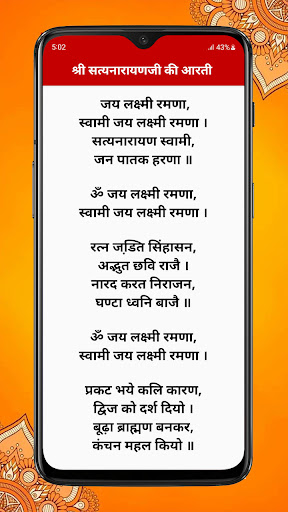 5:02
43%
श्री सत्यनारायणजी की आरती
जय लक्ष्मी रमणा,
स्वामी जय लक्ष्मी रमणा ।
सत्यनारायण स्वामी,
जन पातक हरणा ॥
ॐ जय लक्ष्मी रमणा,
स्वामी जय लक्ष्मी रमणा ।
रत्न जड़ित सिंहासन,
अद्भुत छवि राजै ।
नारद करत निराजन,
घण्टा ध्वनि बाजै ॥
ॐ जय लक्ष्मी रमणा,
स्वामी जय लक्ष्मी रमणा ।
प्रकट भये कलि कारण,
द्विज को दर्श दियो ।
बूढ़ा ब्राह्मण बनकर,
कंचन महल कियो ॥